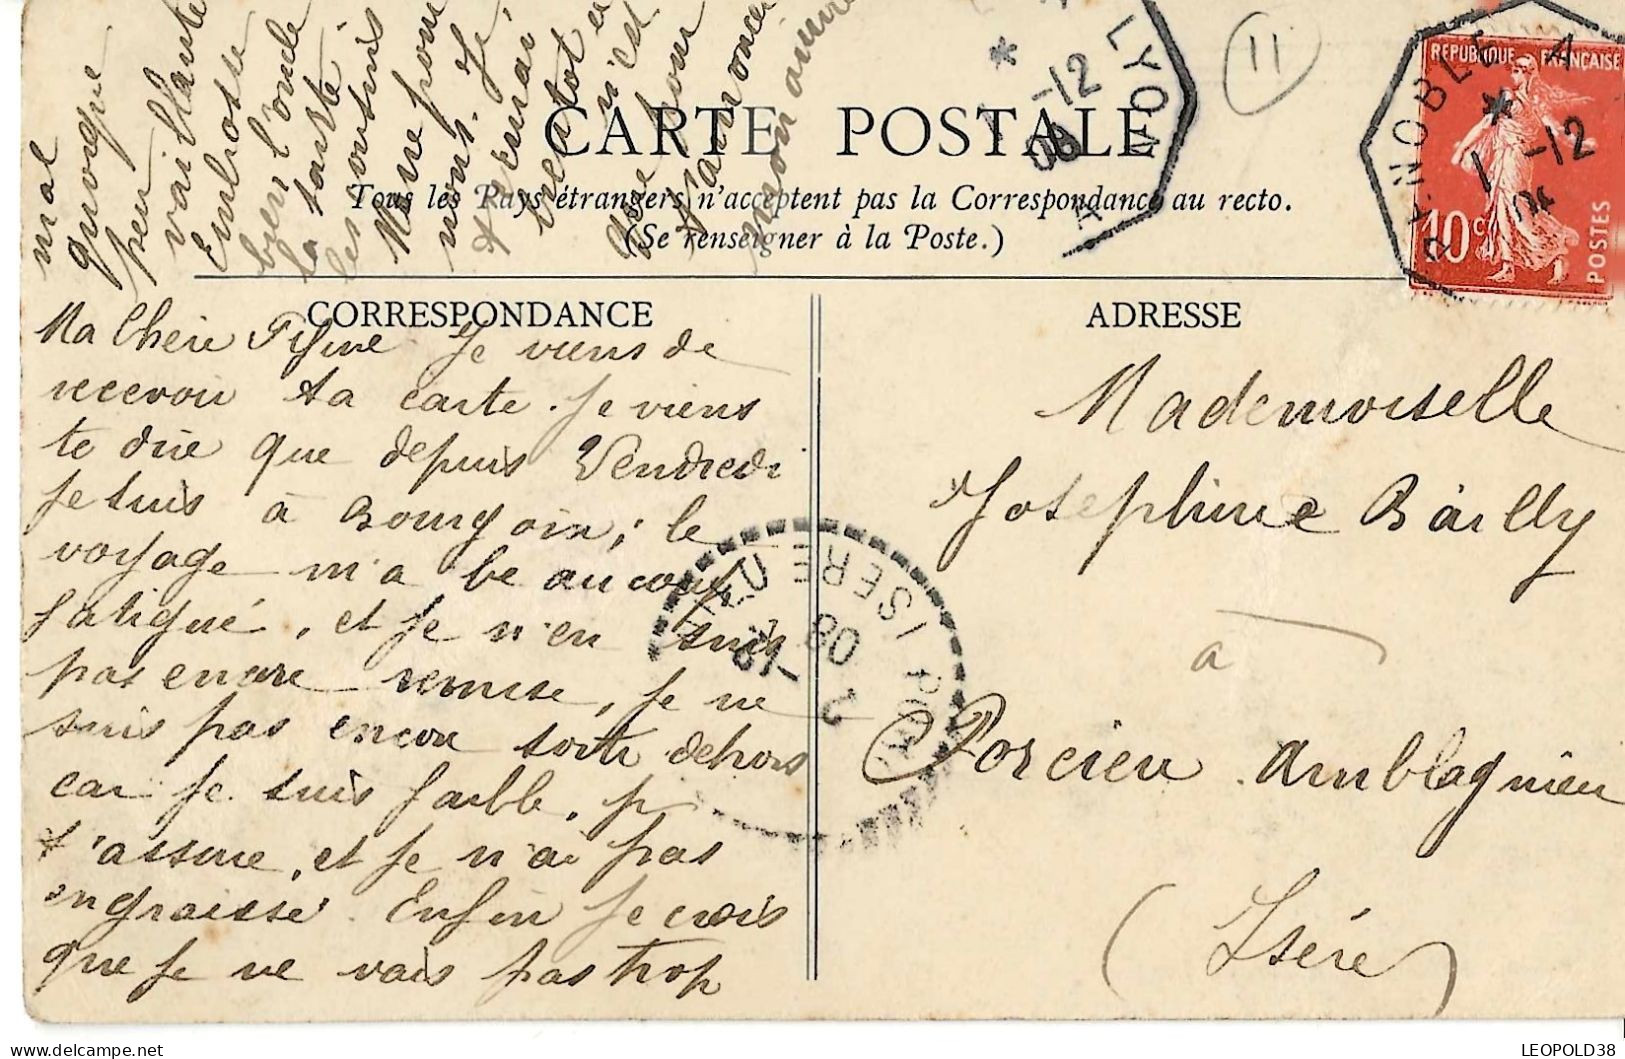 CARTE POSTALE
Tous les Pays étrangers n'acceptent pas la Correspondance au recto.
(Se renseigner à la Poste.)
CORRESPONDANCE
ADRESSE
REPUBLIQUE FRANÇAISE
10c
POSTES
LYON
1 -12
08
11
1 -12
ISERE
2 -12
08
Ma Chère Fifine Je viens de
recevoir ta carte. Je viens
te dire que depuis Vendredi
Je suis à Bourgoin, le
voyage m'a beaucoup
fatigué, et Je n'en suis
pas encore remise, Je ne
suis pas encore sortie dehors
car Je suis faible, p
t'assure, et Je n'ai pas
engraissé. Enfin Je crois
que Je ne vais pas trop
mal
quoique
peu vaillante
Embrasse
bien l'oncle
la tante
les cousins
Mademoiselle
Joséphine Bailly
à
Porcieu Amblagnieu
(Isère)
LEOPOLD38